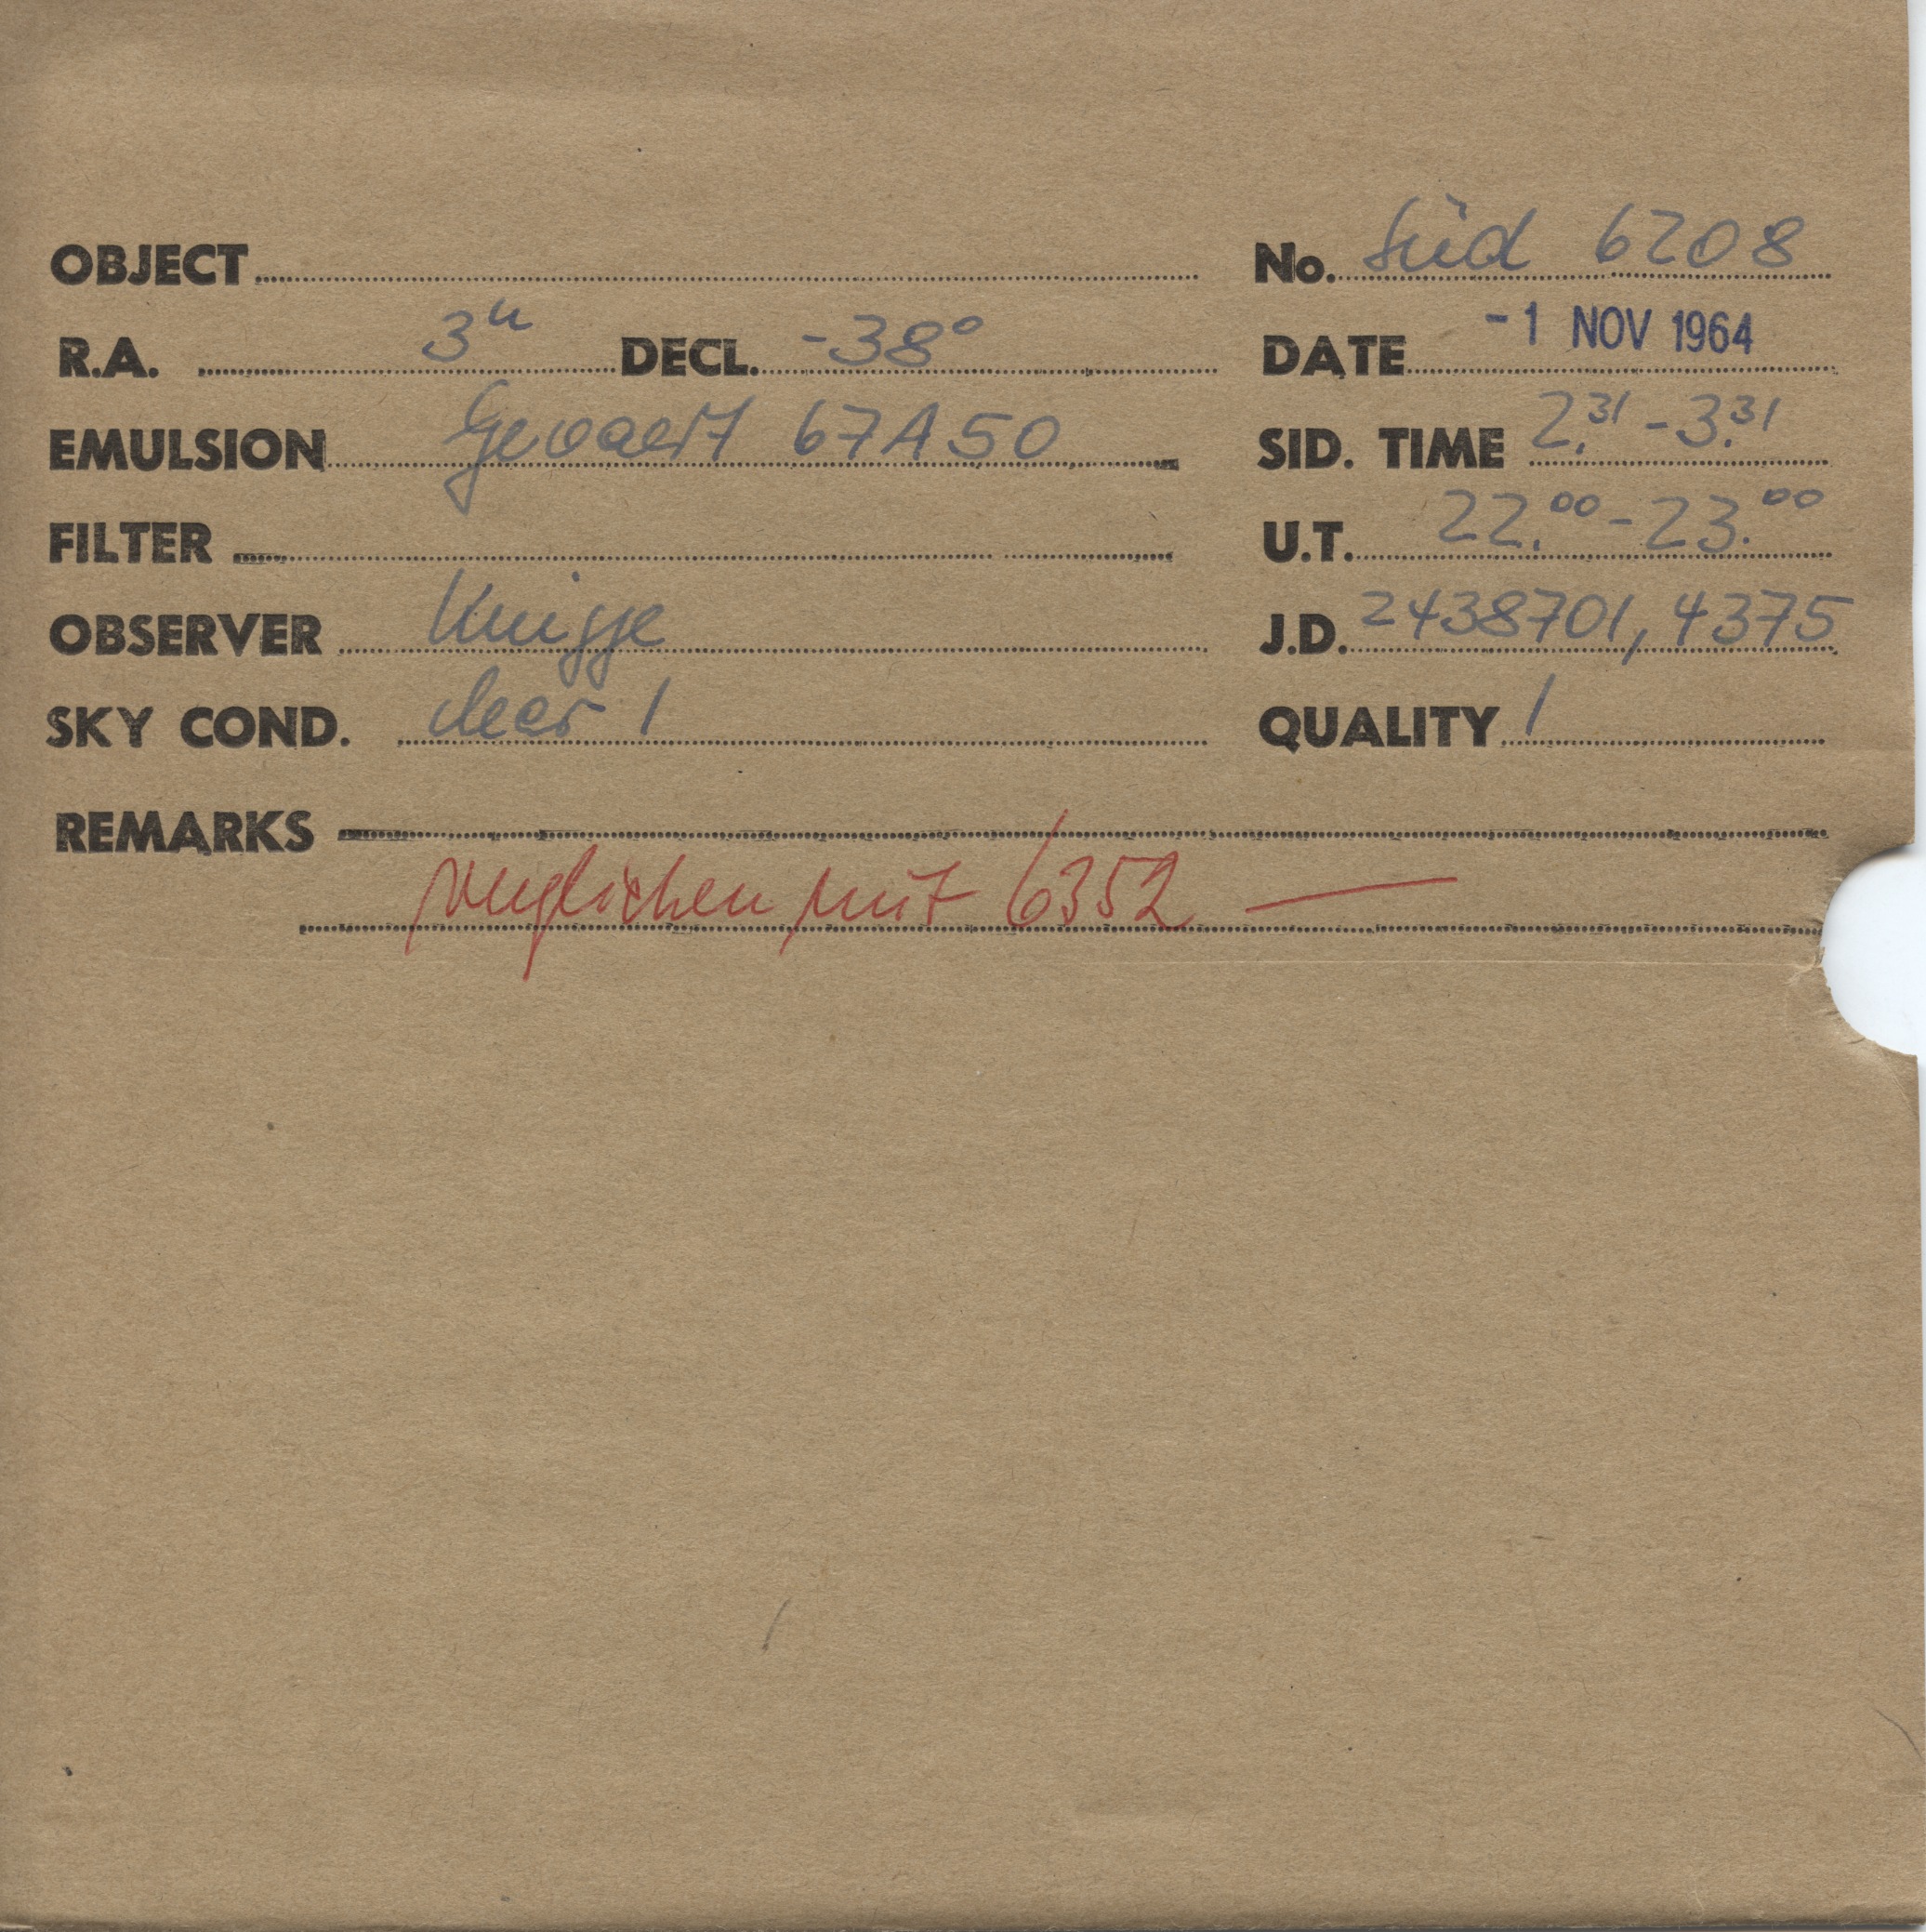 OBJECT No. Süd 6208
R.A. 3h DECL. -38° DATE -1 NOV 1964
EMULSION Gevaert 67A50 SID. TIME 2.31 - 3.31
FILTER U.T. 22.00 - 23.00
OBSERVER Knigge J.D. 2438701,4375
SKY COND. clear 1 QUALITY 1
REMARKS
verglichen mit 6352 —